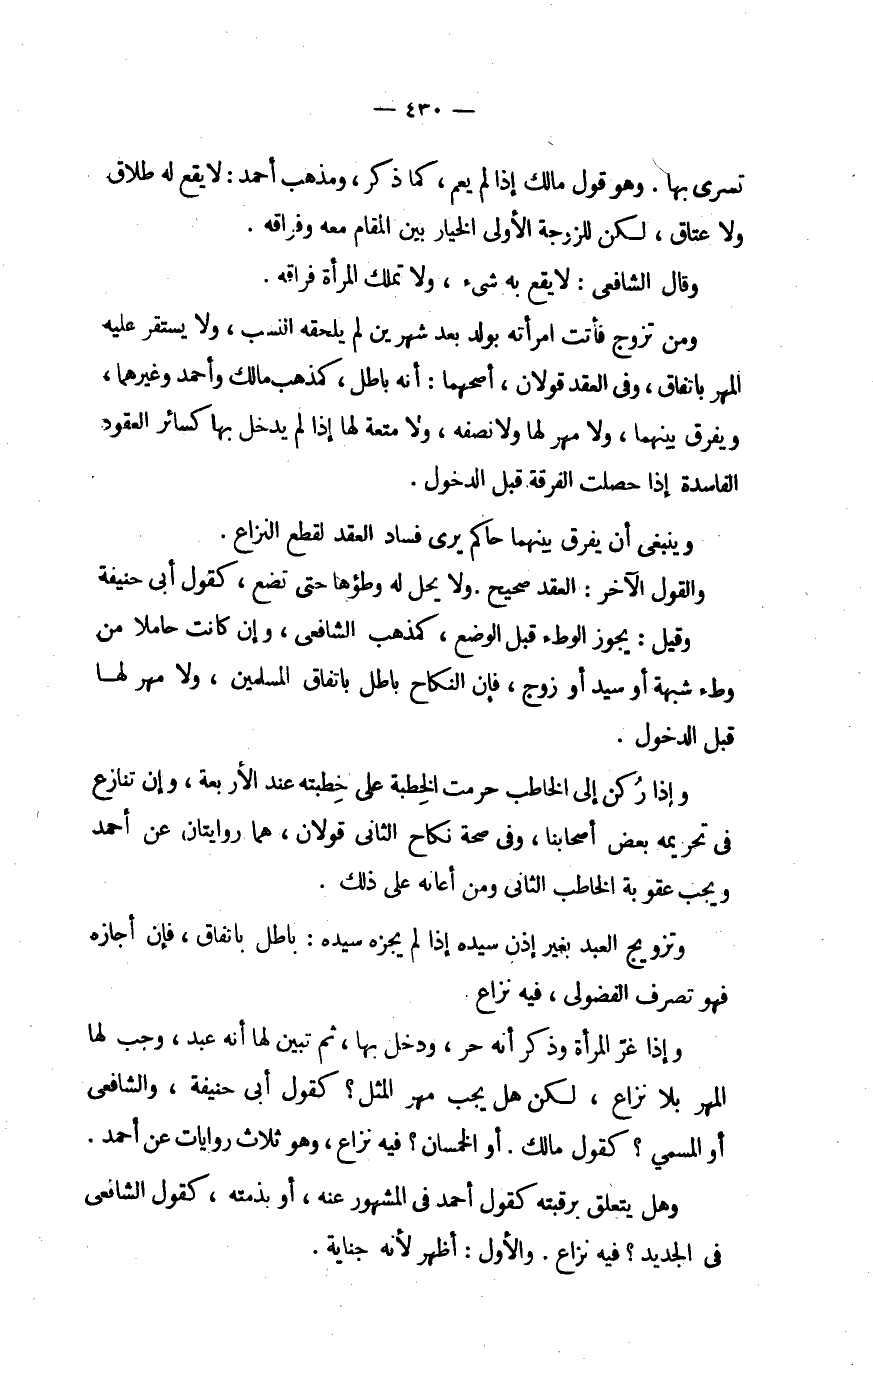 — ٤٣٠ —
تسرى بها . وهو قول مالك إذا لم يعم ، كما ذكر ، ومذهب أحمد : لا يقع له طلاق
ولا عتاق ، لكن للزوجة الأولى الخيار بين المقام معه وفراقه .
وقال الشافعى : لا يقع به شىء ، ولا تملك المرأة فراقه .
ومن تزوج فأتت امرأته بولد بعد شهرين لم يلحقه النسب ، ولا يستقر عليه
المهر باتفاق ، وفى العقد قولان ، أصحهما : أنه باطل ، كمذهب مالك وأحمد وغيرهما ،
ويفرق بينهما ، ولا مهر لها ولا نصفه ، ولا متعة لها إذا لم يدخل بها كسائر العقود
الفاسدة إذا حصلت الفرقة قبل الدخول .
وينبغى أن يفرق بينهما حاكم يرى فساد العقد لقطع النزاع .
والقول الآخر : العقد صحيح . ولا يحل له وطؤها حتى تضع ، كقول أبى حنيفة
وقيل : يجوز الوطء قبل الوضع ، كمذهب الشافعى ، وإن كانت حاملا من
وطء شبهة أو سيد أو زوج ، فإن النكاح باطل باتفاق المسلمين ، ولا مهر لها
قبل الدخول .
وإذا رُكن إلى الخاطب حرمت الخِطبة على خِطبته عند الأربعة ، وإن تنازع
فى تحريمه بعض أصحابنا ، وفى صحة نكاح الثانى قولان ، هما روايتان عن أحمد
ويجب عقوبة الخاطب الثانى ومن أعانه على ذلك .
وتزويج العبد بغير إذن سيده إذا لم يجزه سيده : باطل باتفاق ، فإن أجازه
فهو تصرف الفضولى ، فيه نزاع .
وإذا غرّ المرأة وذكر أنه حر ، ودخل بها ، ثم تبين لها أنه عبد ، وجب لها
المهر بلا نزاع ، لكن هل يجب مهر المثل ؟ كقول أبى حنيفة ، والشافعى
أو المسمي ؟ كقول مالك . أو الخمسان ؟ فيه نزاع ، وهو ثلاث روايات عن أحمد .
وهل يتعلق برقبته كقول أحمد فى المشهور عنه ، أو بذمته ، كقول الشافعى
فى الجديد ؟ فيه نزاع . والأول : أظهر لأنه جناية .